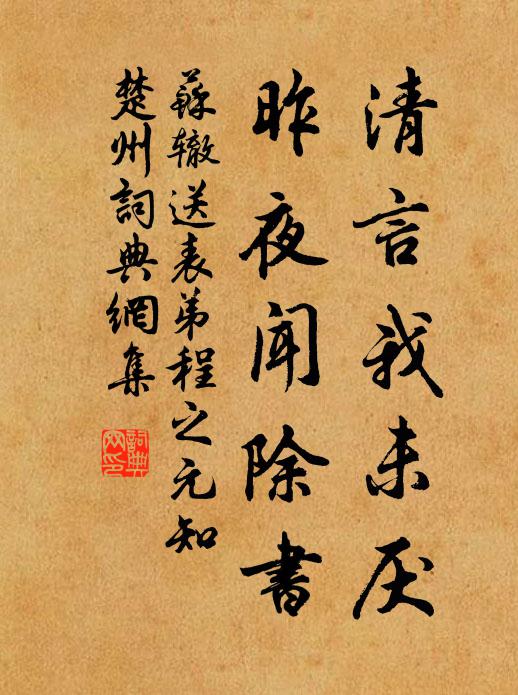 清言我未厌
昨夜闻除書
蘇辙送表弟程之元知
楚州詞典網集
詞典網印